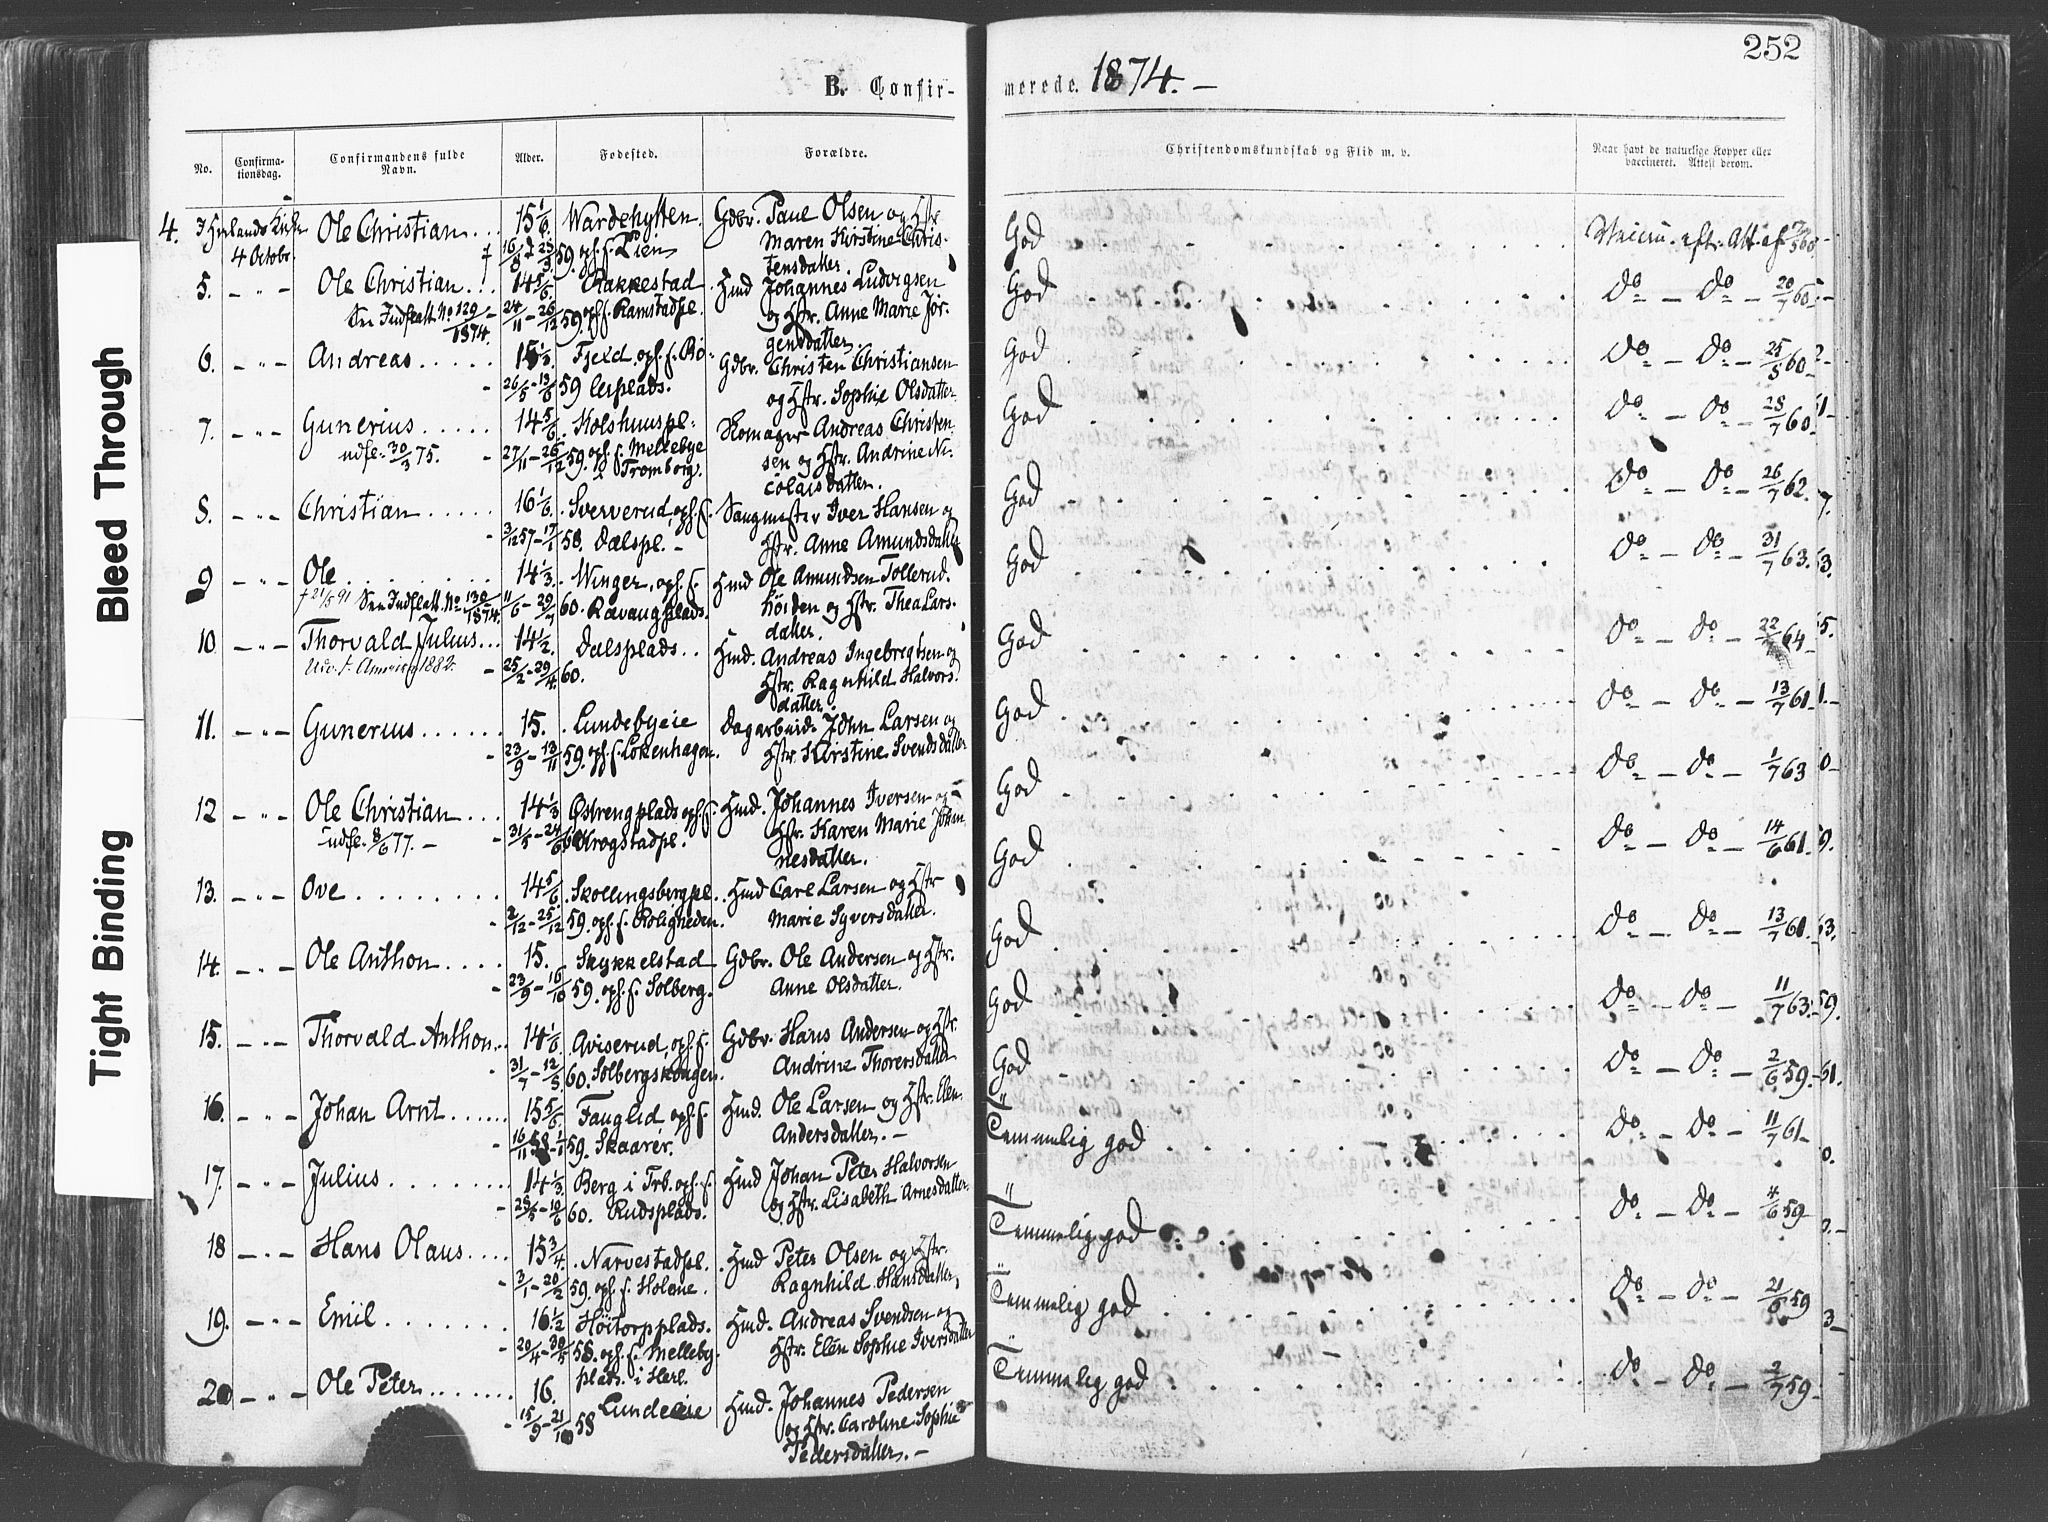 252
B. Confir-
merede. 1874. –
No.
Confirma-
tionsdag.
Confirmandens fulde
Navn.
Alder.
Fødested.
Forældre.
Christendomskundskab og Flid m. v.
Naar havt de naturlige Kopper eller
vaccineret. Attest derom.
4. I Herlands Kirke Ole Christian... 15 1/6. Wardehytten. Gdbr. Paul Olsen og Hstr.
4 Octobr. 59. oph. f. Lien Maren Kirstine Chris-
tensdatter.
God
5. – " – Ole Christian... 14 5/6. Rakkestad Hmd Johannes Ludvigsen
See Indflatt. No 129/1874. 24/11 – 26/12 59. oph. f. Ramstadpl. og Hstr. Anne Marie Jør-
gensdatter.
God do – do – 20/7 60.
6. – " – Andreas..... 15 1/3. Fjeld. oph. f. Gdbr. Christen Christiansen
26/5 – 13/6 59 og Hstr. Sophie Olsdatter.
God do – do – 25/5 60
7. – " – Gunerius..... 14 5/6. Kolshuuspl. Skomager Andreas Christen-
udfl. 30/3 75. 27/11 – 26/12 59. oph. f. Mellebye sen og Hstr. Andrine Ni-
i Trømborg. colaisdatter.
God do – do – 28/7 60.
8. – " – Christian..... 16 1/6. Sververud, oph. f. Saugmester Iver Hansen og
3/12 57 – 17/1 58. Dælspl. – Hstr. Anne Amundsdatter
God do – do – 26/7 62.
9 – " – Ole......... 14 1/3. Winger, oph. f. Hmd Ole Amundsen Tollerud-
† 21/5 91 See Indflatt. No. 130/1874. 11/6 – 29/7 60. Rævaugplads. høiden og Hstr. Thea Lars-
datter.
God do – do – 31/7 63.
10 – " – Thorvald Julius... 14 1/2. Dælsplads.. Hmd. Andreas Ingebregtsen og
Udv. t. Amerika 1882. 25/2 – 29/4 60. Hstr. Ragnhild Halvors-
datter.
God do – do – 22/ 64
11. – " – Gunerius...... 15. Lundebyeie Dagarbeid. John Larsen og
23/9 – 13/11 59. oph. f. Løkenhagen. Hstr. Kirstine Svendsdatter
God do – do – 13/7 61
12 – " – Ole Christian... 14 1/3 Østrengplads oph. f. Hmd. Johannes Iversen og
udfl. 8/6 77. – 31/5 – 24/6 60 Krogstadpl. Hstr. Karen Marie Johan-
nesdatter.
God do – do – 1/7 63
13. – " – Ove........ 14 5/6 Skollingsbergpl. Hmd Carl Larsen og Hstr
2/12 – 25/12 59. oph. f. Roligheden. Marie Syversdatter.
God do – do – 14/6 61.
14. – " – Ole Anthon.... 15. Skykkelstad Gdbr. Ole Andersen og Hstr.
23/9 – 16/10 59. oph. f. Solberg. Anne Olsdatter.
God do – do – 13/7 61.
15. – " – Thorvald Anthon.. 14 1/6 Aviserud, oph. f. Gdbr. Hans Andersen og Hstr.
31/7 – 12/8 60. Solbergskougen. Andrine Thorersdatter
God do – do – 11/7 63.
16. – " – Johan Arnt...... 15 5/6. Fauglid, oph. f. Hmd. Ole Larsen og Hstr. Elen
16/11 58 – 1/1 59. Skaarer. Andersdatter. –
God do – do – 2/6 59.
17. – " – Julius........ 14 1/3. Berg i Trb. oph. f. Hmd Johan Peter Halvorsen
28/5 – 10/6 60. Rudsplads. og Hstr. Lisabeth Arnesdatter.
Temmelig god do – do – 11/7 61
18 – " – Hans Olaus.... 15 3/4 Narvestadpl. Hmd Peter Olsen og Hstr.
3/1 – 20/2 59. oph. f. Holene. Ragnhild Hansdatter.
Temmelig god do – do – 4/6 59
19. – " – Emil........ 16 1/2 Høitorpplads. Hmd. Andreas Svendsen og
20/4 – 30/5 58. oph. f. Melleby- Hstr. Elen Sophie Iversdatter
plads. i Herl.
Temmelig god do – do – 21/6 59
20 – " – Ole Peter....... 16. Lundeeie Hmd. Johannes Pedersen
15/9 – 21/10 58 og Hstr. Caroline Sophie
Pedersdatter. –
Temmelig god do – do – 2/7 59
Bleed Through
Tight Binding